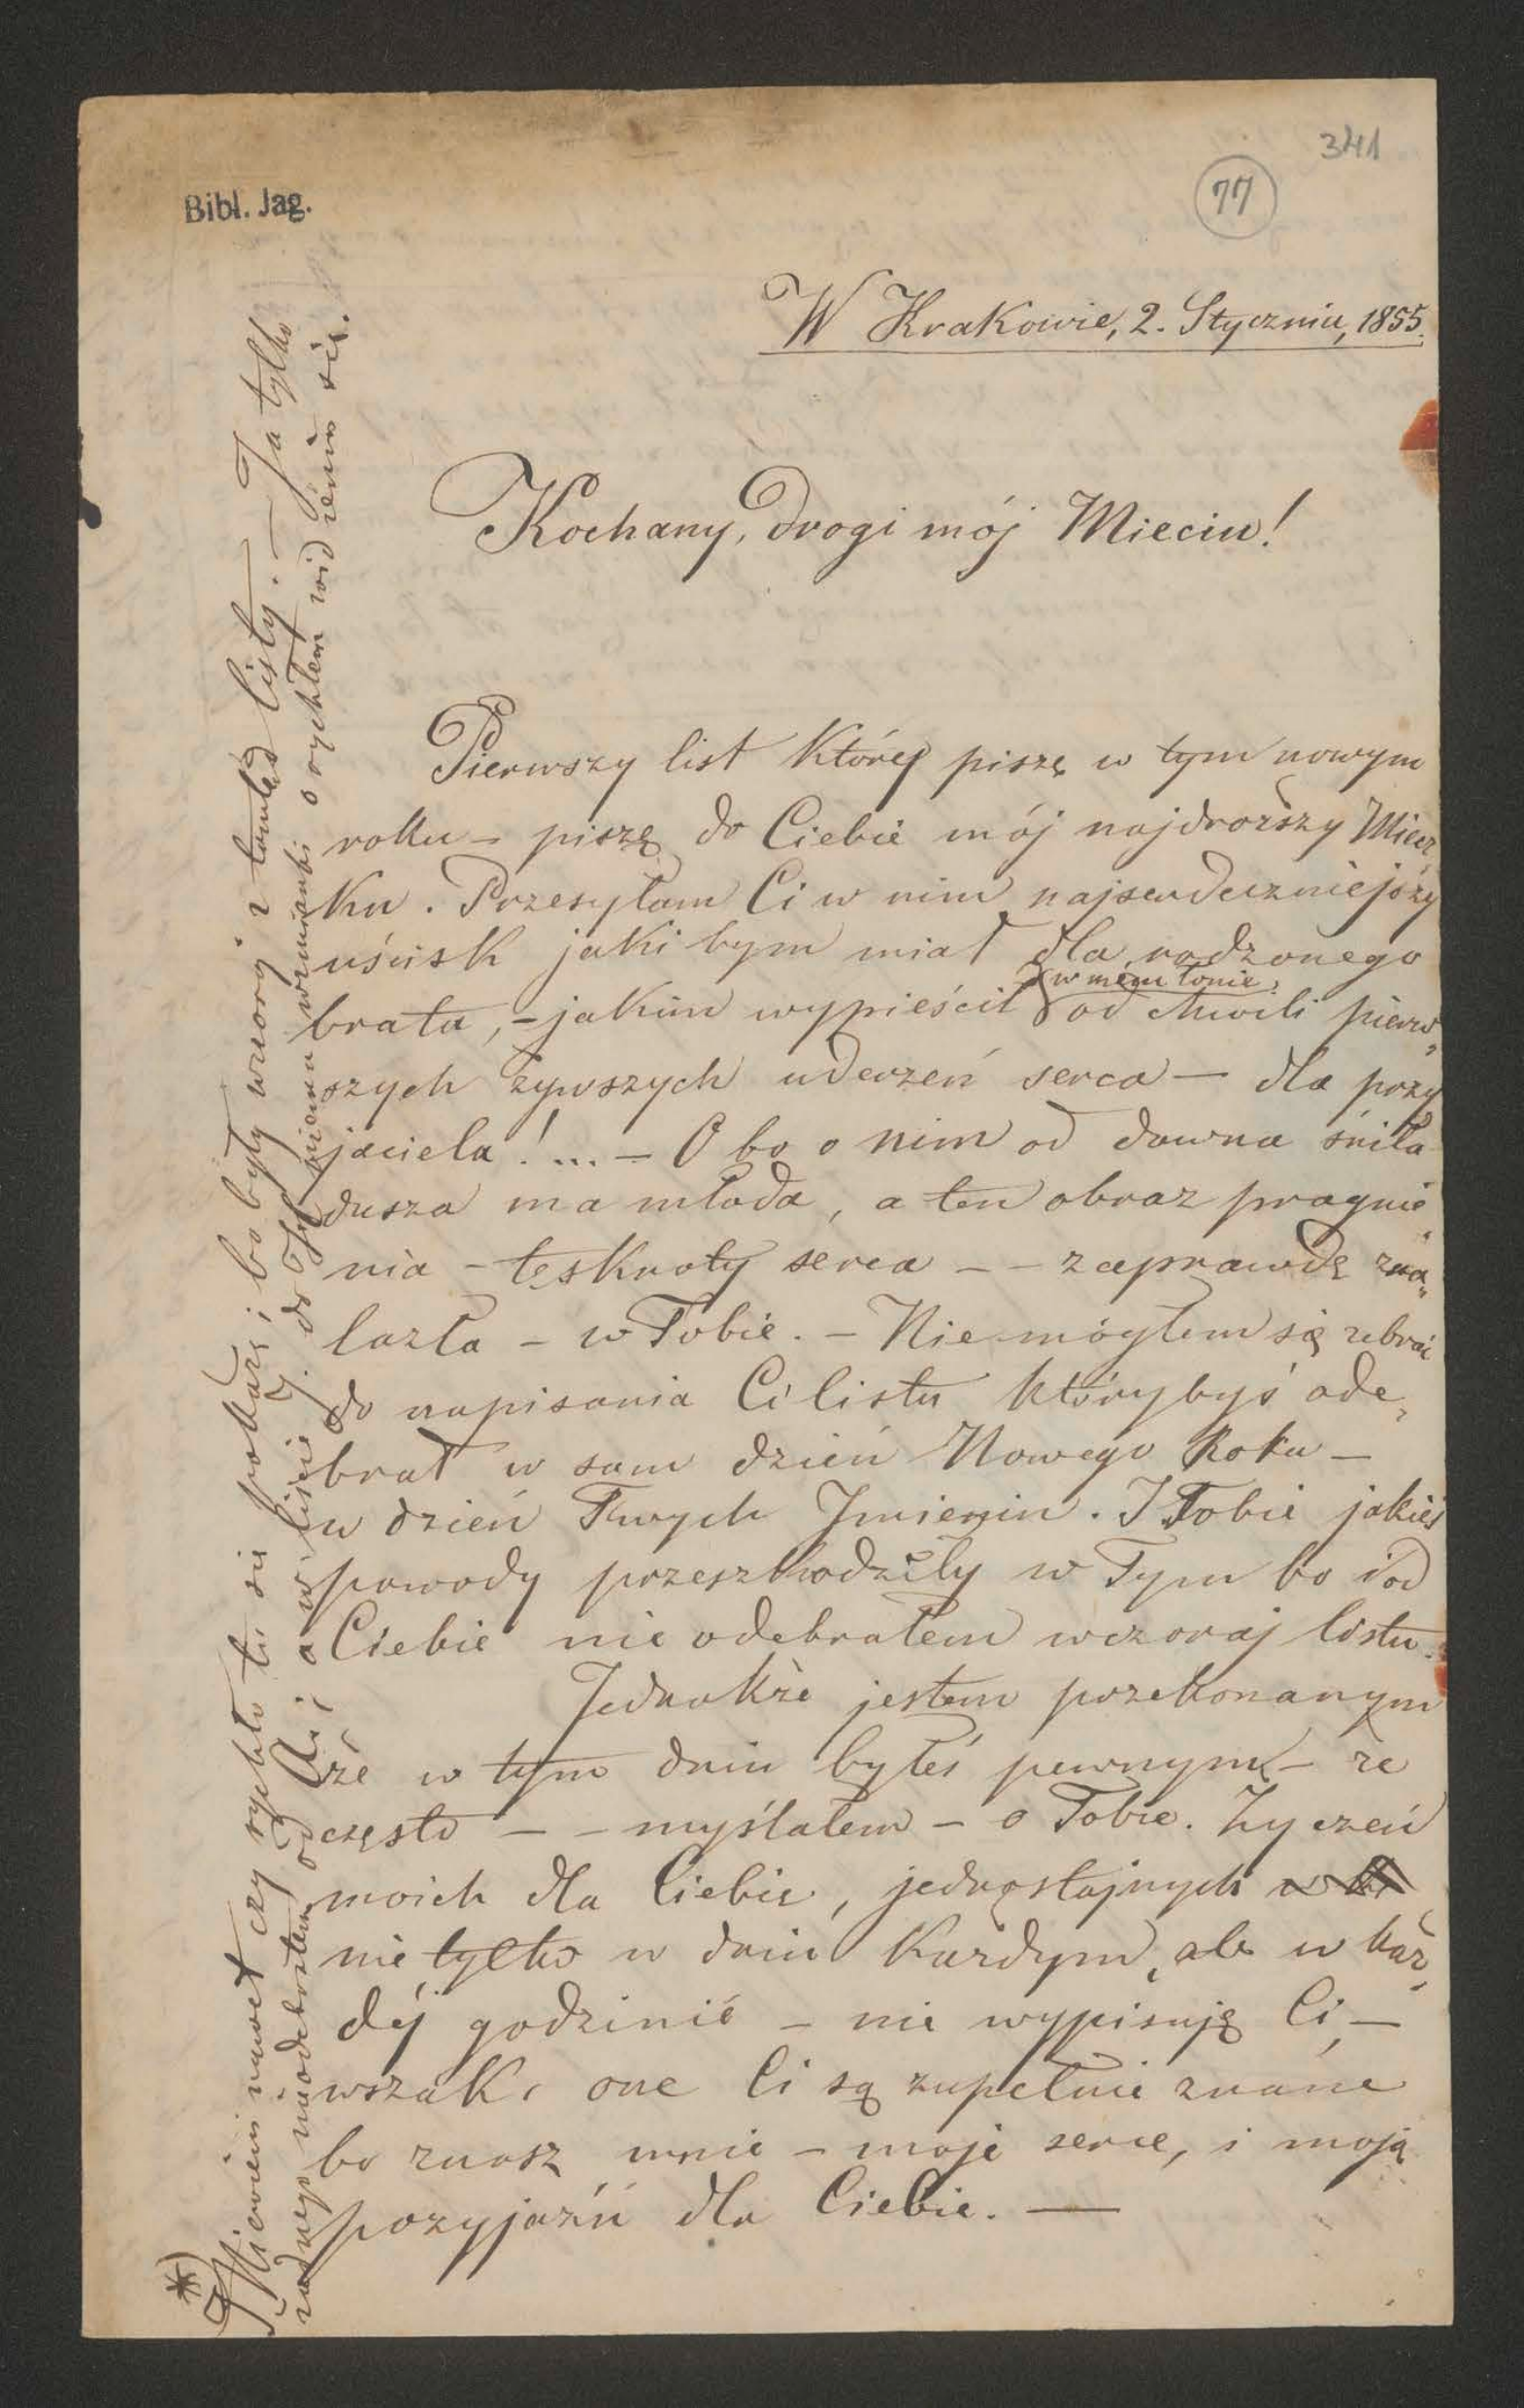 341
77
Bibl. Jag.
W Krakowie, 2. Stycznia, 1855.
Kochany, drogi mój Mieciu!
Pierwszy list który piszę w tym nowym
roku – piszę do Ciebie mój najdroższy Miecz„
ku. Przesyłam Ci w nim najserdeczniejszy
uścisk jaki bym miał dla rodzonego
brata, – jakim wypieścił w mem łonie od chwili pierw„
szych żywszych uderzeń serca – dla przy
jaciela! ... – O bo o nim od dawna śniła
dusza ma młoda, a ten obraz pragnie„
nia – tęsknoty serca – – zaprawdę zna„
lazła – w Tobie. – Nie mógłem się zebrać
do napisania Ci listu którybyś ode„
brał w sam dzień Nowego Roku –
w dzień Twych Imienin. I Tobie jakieś
powody przeszkodziły w Tym bo i od
Ciebie nie odebrałem wczoraj listu.
Jednakże jestem przekonanym
że w tym dniu byłeś pewnym – że
często – – myślałem – o Tobie. Życzeń
moich dla Ciebie, jednostajnych w
nie tylko w dniu każdym, ale w każ„
déj godzinie – nie wypisuję Ci –
wszak one Ci są zupełnie znane
bo znasz mnie – moje serce, i moją
przyjaźń dla Ciebie. —
*) Niewiem nawet czy rychło tu się pokażę i bo były wczoraj z tamtąd listy. – Ja tylko
żadnego nieodebrałem od Ni i a w liście J. do Tyt niema wzmianki o rychłem widzeniu się.